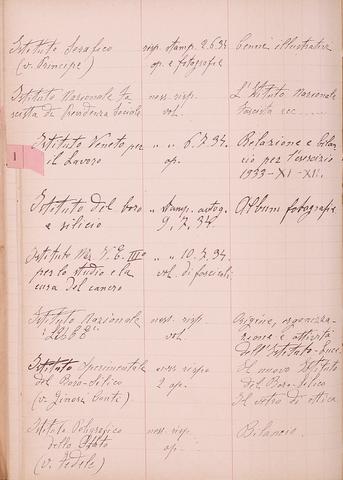 Istituto Serafico risp. stamp. 2.6.34 Cenni illustrativi
(v. Principe) op. e fotografie
Istituto Nazionale Fa- ness. risp. L'Istituto Nazionale
scista di Previdenza Sociale vol. fascista ecc.....
1
Istituto Veneto per " " 6.7.34. Relazione e bilan-
il Lavoro op. cio per l'esercizio
1933-XI-XII.
Istituto del boro " stamp. autog. Album fotografie
e silicio 9.7.34.
Istituto V. E. III° " " 10.7.34.
per lo studio e la vol. di fascicoli
cura del cancro
Istituto Nazionale ness. risp. Origine, organizza-
"LUCE" vol. zione e attività
dell'Istituto Luce
Istituto Sperimentale ness. risp. Il nuovo Istituto
del Boro-Silicio 2 op. del Boro-Silicio
(v. Ginori Conti) Il vetro di ottica
Istituto Poligrafico ness. risp. Bilancio.
dello Stato op.
(v. Fedele)